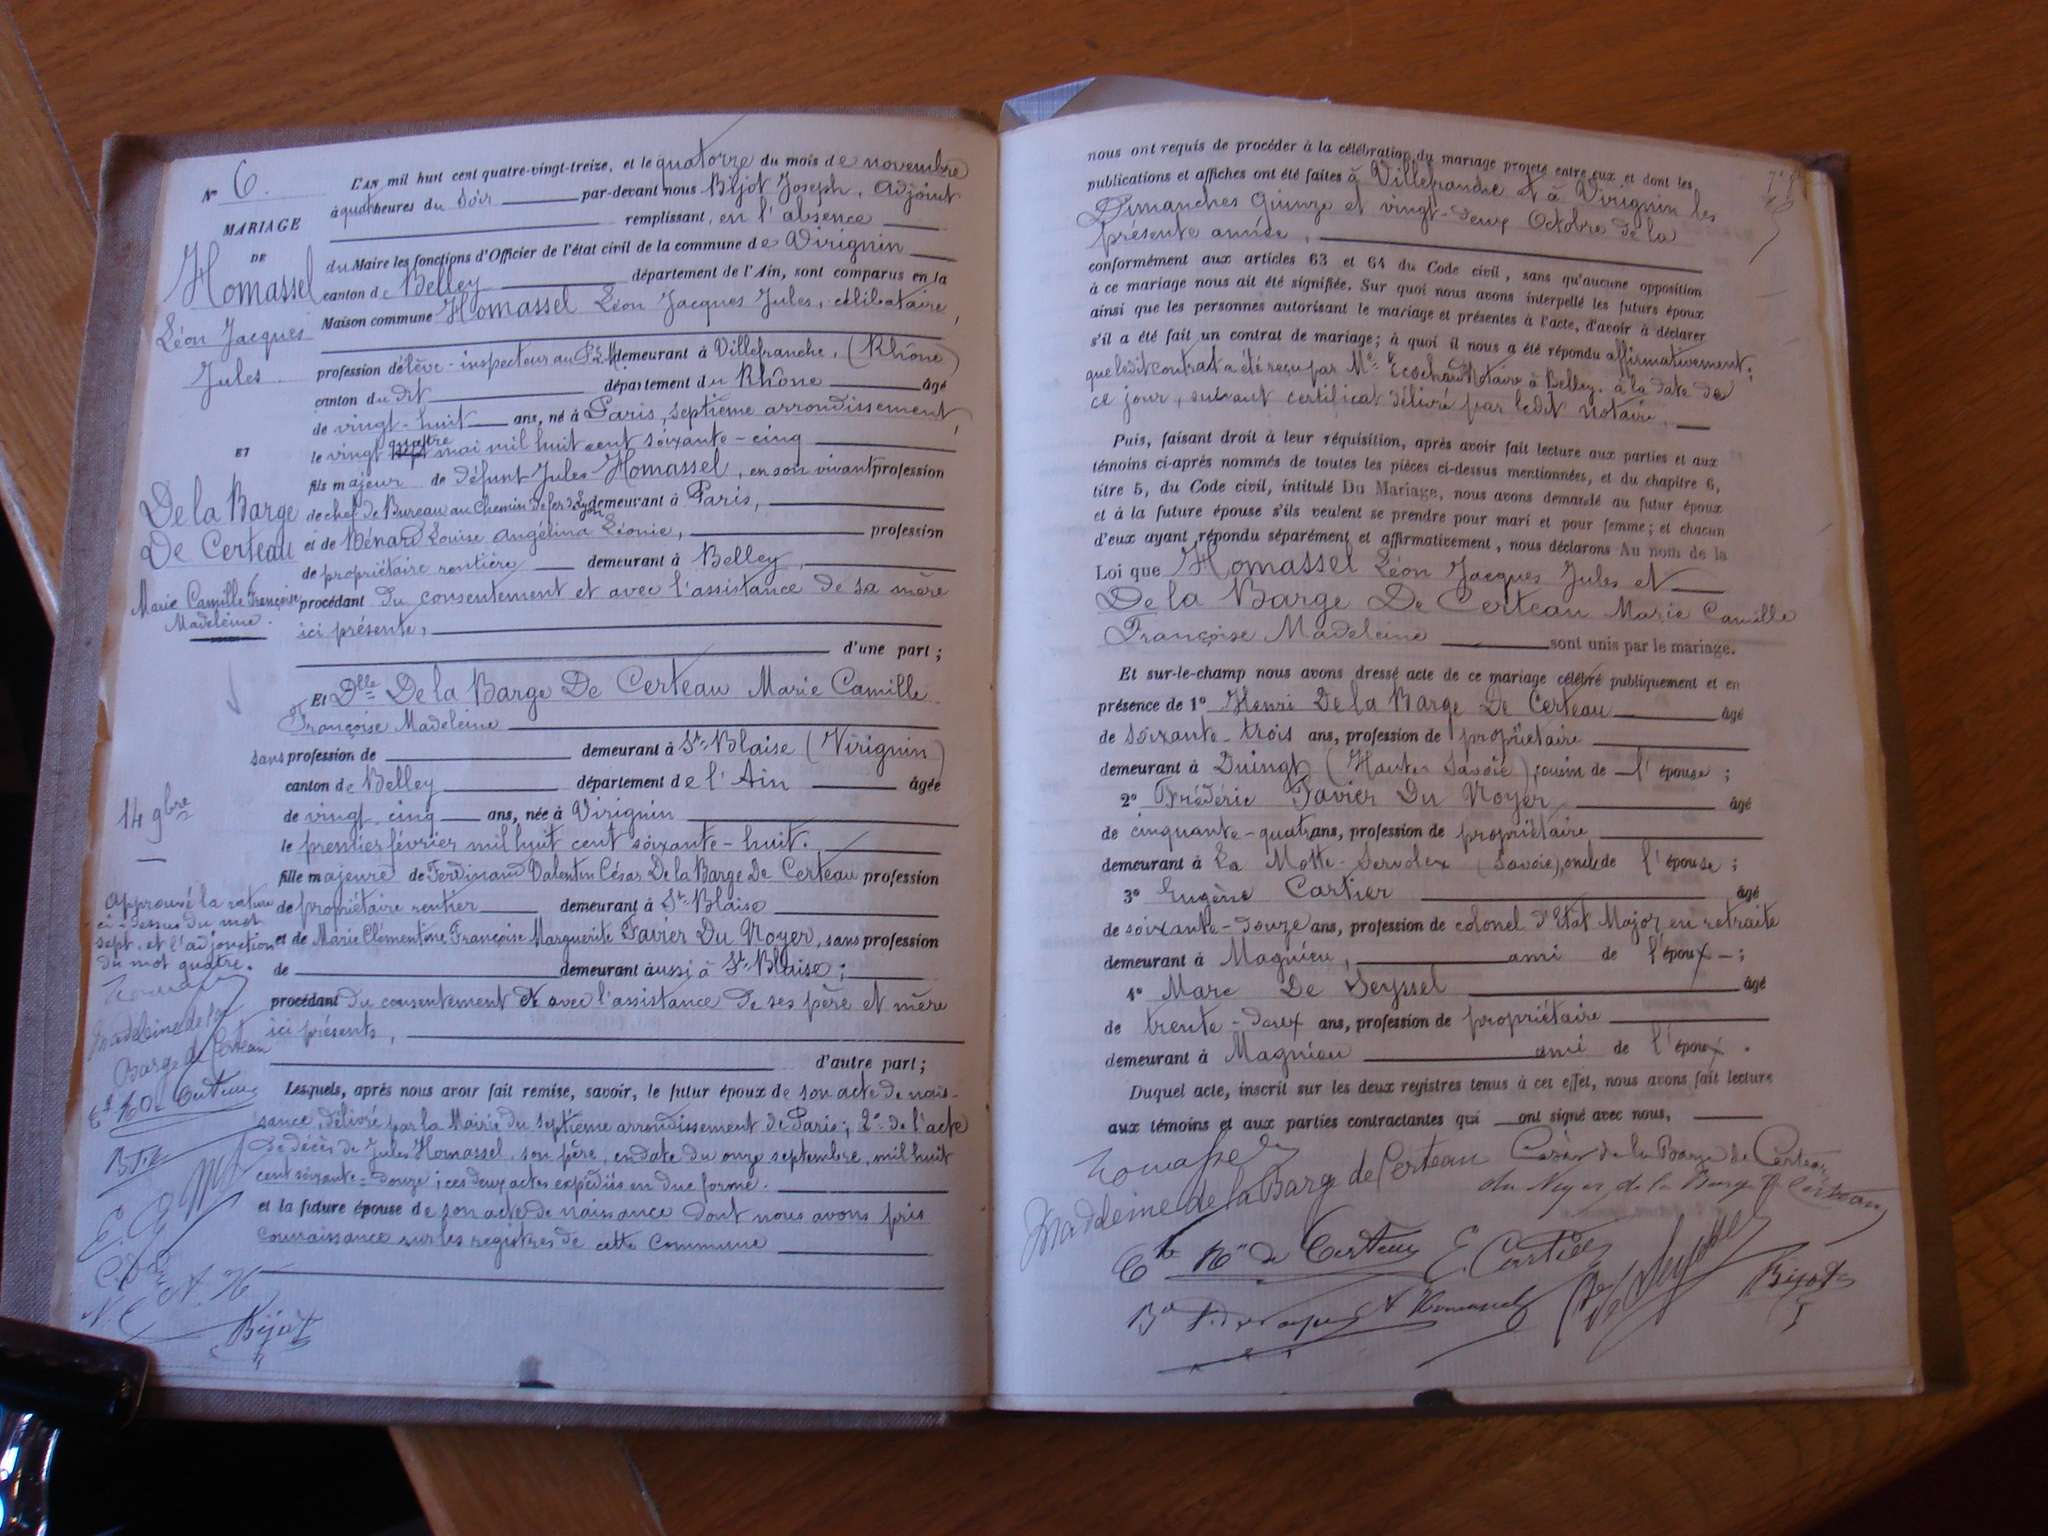 N° 6.
MARIAGE
DE
Homassel
Léon Jacques
Jules
ET
De la Barge
De Certeau
Marie Camille Françoise
Madeleine.
14 9bre
Approuvé la rature
ci-dessus du mot
sept, et l'adjonction
du mot quatre.
Homassel
Madeleine de la
Barge de Certeau
Bijot
L'AN mil huit cent quatre-vingt-treize, et le quatorze du mois de novembre
à quatre heures du soir par-devant nous Bijot Joseph, Adjoint
remplissant, en l'absence
du Maire les fonctions d'Officier de l'état civil de la commune de Virignin
canton de Belley département de l'Ain, sont comparus en la
Maison commune Homassel Léon Jacques Jules, célibataire,
profession d'élève-inspecteur au demeurant à Villefranche, (Rhône)
canton du dit département du Rhône âgé
de vingt-huit ans, né à Paris, septième arrondissement,
le vingt sept quatre mai mil huit cent soixante-cinq
fils majeur de défunt Jules Homassel, en son vivant profession
de chef de Bureau au Chemin de fer de Lyon demeurant à Paris,
et de Bénard Louise Angélina Léonie, profession
de propriétaire rentière demeurant à Belley,
procédant du consentement et avec l'assistance de sa mère
ici présente,
d'une part;
Et Dlle De la Barge De Certeau Marie Camille
Françoise Madeleine
sans profession de demeurant à St-Blaise (Virignin)
canton de Belley département de l'Ain âgée
de vingt cinq ans, née à Virignin
le premier février mil huit cent soixante-huit.
fille majeure de Ferdinand Valentin César De la Barge De Certeau profession
de propriétaire rentier demeurant à St-Blaise
et de Marie Clémentine Françoise Marguerite Favier Du Noyer, sans profession
de demeurant aussi à St-Blaise;
procédant du consentement et avec l'assistance de ses père et mère
ici présents,
d'autre part;
Lesquels, après nous avoir fait remise, savoir, le futur époux de son acte de nais-
sance, délivré par la Mairie du septième arrondissement de Paris; 2° de l'acte
de décès de Jules Homassel, son père, en date du onze septembre, mil huit
cent soixante-douze; ces deux actes expédiés en due forme.
et la future épouse de son acte de naissance dont nous avons pris
connaissance sur les registres de cette commune
nous ont requis de procéder à la célébration du mariage projeté entre eux et dont les
publications et affiches ont été faites à Villefranche et à Virignin les
Dimanches quinze et vingt-deux Octobre de la
présente année,
conformément aux articles 63 et 64 du Code civil, sans qu'aucune opposition
à ce mariage nous ait été signifiée. Sur quoi nous avons interpellé les futurs époux
ainsi que les personnes autorisant le mariage et présentes à l'acte, d'avoir à déclarer
s'il a été fait un contrat de mariage; à quoi il nous a été répondu affirmativement;
que ledit contrat a été reçu par Me Ecochard Notaire à Belley, à la date de
ce jour, suivant certificat délivré par ledit Notaire.
Puis, faisant droit à leur réquisition, après avoir fait lecture aux parties et aux
témoins ci-après nommés de toutes les pièces ci-dessus mentionnées, et du chapitre 6,
titre 5, du Code civil, intitulé Du Mariage, nous avons demandé au futur époux
et à la future épouse s'ils veulent se prendre pour mari et pour femme; et chacun
d'eux ayant répondu séparément et affirmativement, nous déclarons Au nom de la
Loi que Homassel Léon Jacques Jules et
De la Barge De Certeau Marie Camille
Françoise Madeleine sont unis par le mariage.
Et sur-le-champ nous avons dressé acte de ce mariage célébré publiquement et en
présence de 1° Henri De la Barge De Certeau âgé
de soixante-trois ans, profession de propriétaire
demeurant à Duingt (Haute Savoie), cousin de l'épouse;
2° Frédéric Favier Du Noyer âgé
de cinquante-quatre ans, profession de propriétaire
demeurant à La Motte-Servolex (Savoie), oncle de l'épouse;
3° Eugène Cartier âgé
de soixante-douze ans, profession de colonel d'Etat Major en retraite
demeurant à Magnieu, ami de l'époux;
4° Marc De Seyssel âgé
de trente-deux ans, profession de propriétaire
demeurant à Magnieu ami de l'époux.
Duquel acte, inscrit sur les deux registres tenus à cet effet, nous avons fait lecture
aux témoins et aux parties contractantes qui ont signé avec nous,
Homassel
Madeleine de la Barge de Certeau César de la Barge de Certeau
du Noyer de la Barge de Certeau
de Certeau E. Cartier
Homassel Bijot